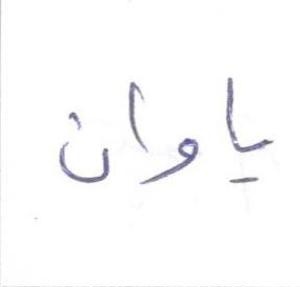 ياوان